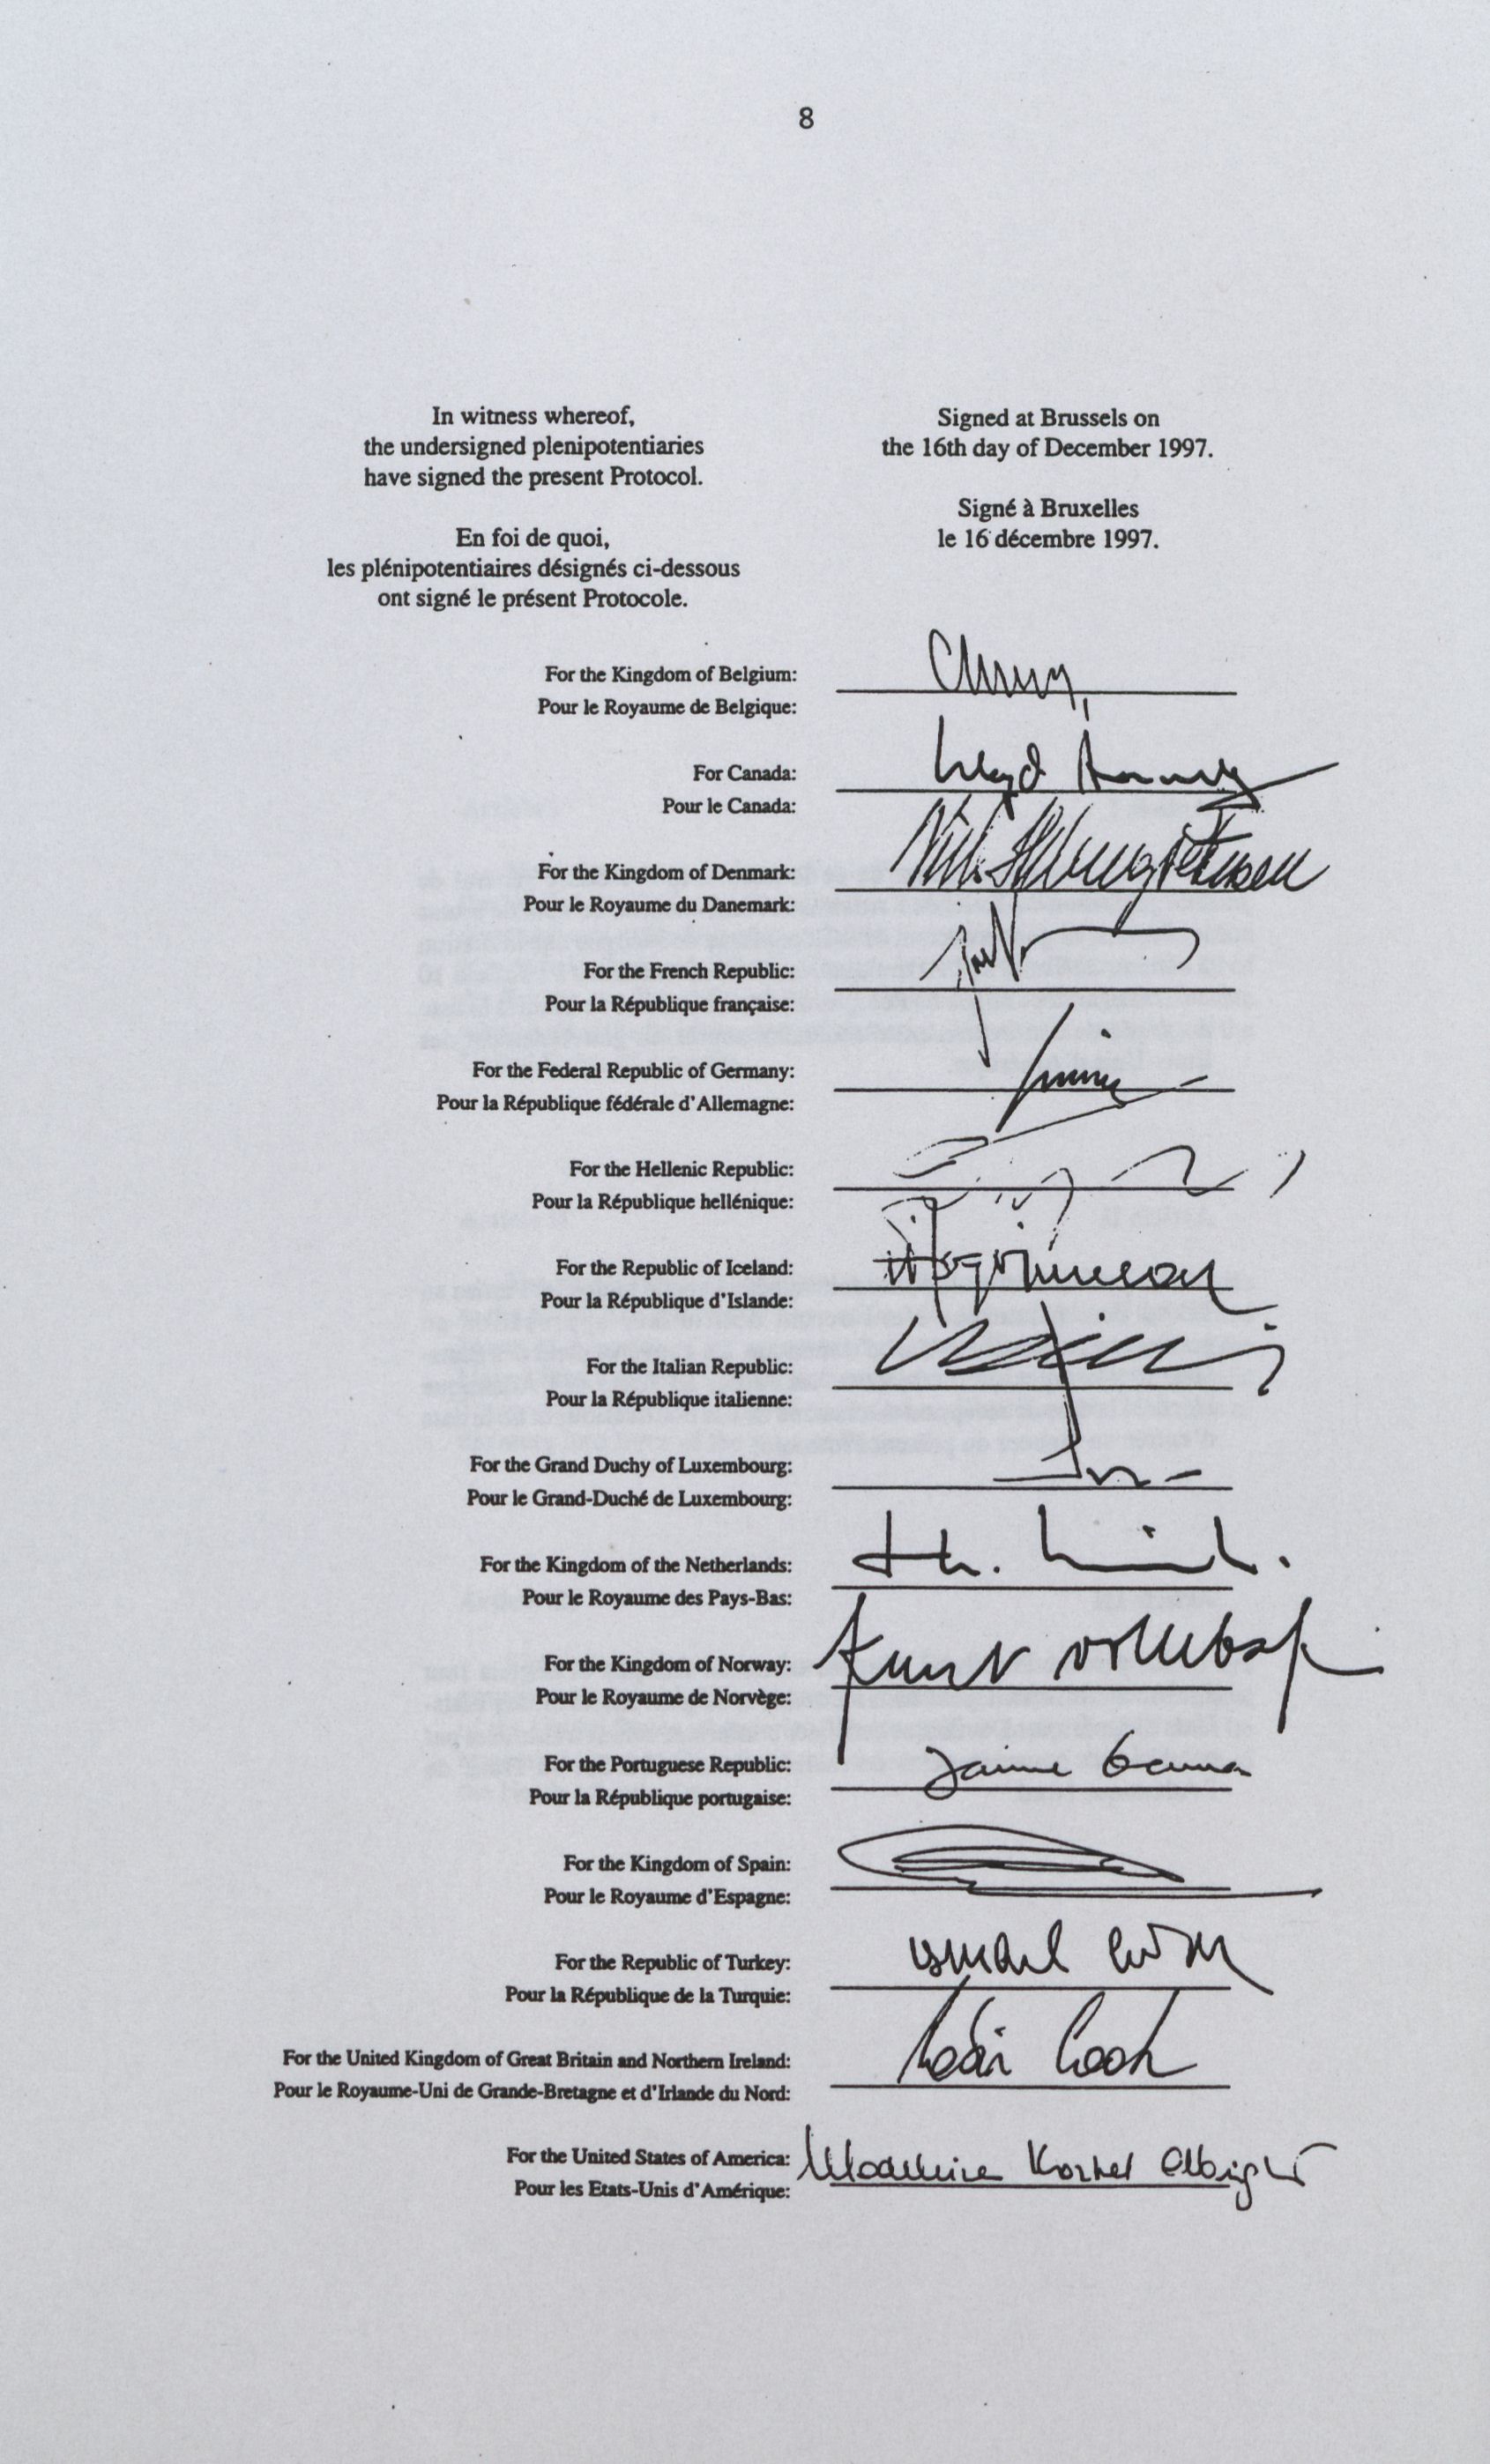 8
In witness whereof,
the undersigned plenipotentiaries
have signed the present Protocol.
En foi de quoi,
les plénipotentiaires désignés ci-dessous
ont signé le présent Protocole.
Signed at Brussels on
the 16th day of December 1997.
Signé à Bruxelles
le 16 décembre 1997.
For the Kingdom of Belgium:
Pour le Royaume de Belgique:
For Canada: Lloyd
Pour le Canada:
For the Kingdom of Denmark:
Pour le Royaume du Danemark:
For the French Republic:
Pour la République française:
For the Federal Republic of Germany:
Pour la République fédérale d'Allemagne:
For the Hellenic Republic:
Pour la République hellénique:
For the Republic of Iceland:
Pour la République d'Islande:
For the Italian Republic:
Pour la République italienne:
For the Grand Duchy of Luxembourg:
Pour le Grand-Duché de Luxembourg:
For the Kingdom of the Netherlands:
Pour le Royaume des Pays-Bas:
For the Kingdom of Norway: Knut Vollebæk
Pour le Royaume de Norvège:
For the Portuguese Republic: Jaime Gama
Pour la République portugaise:
For the Kingdom of Spain:
Pour le Royaume d'Espagne:
For the Republic of Turkey: Ismail Cem
Pour la République de la Turquie:
For the United Kingdom of Great Britain and Northern Ireland: Robin Cook
Pour le Royaume-Uni de Grande-Bretagne et d'Irlande du Nord:
For the United States of America: Madeleine Korbel Albright
Pour les Etats-Unis d'Amérique: